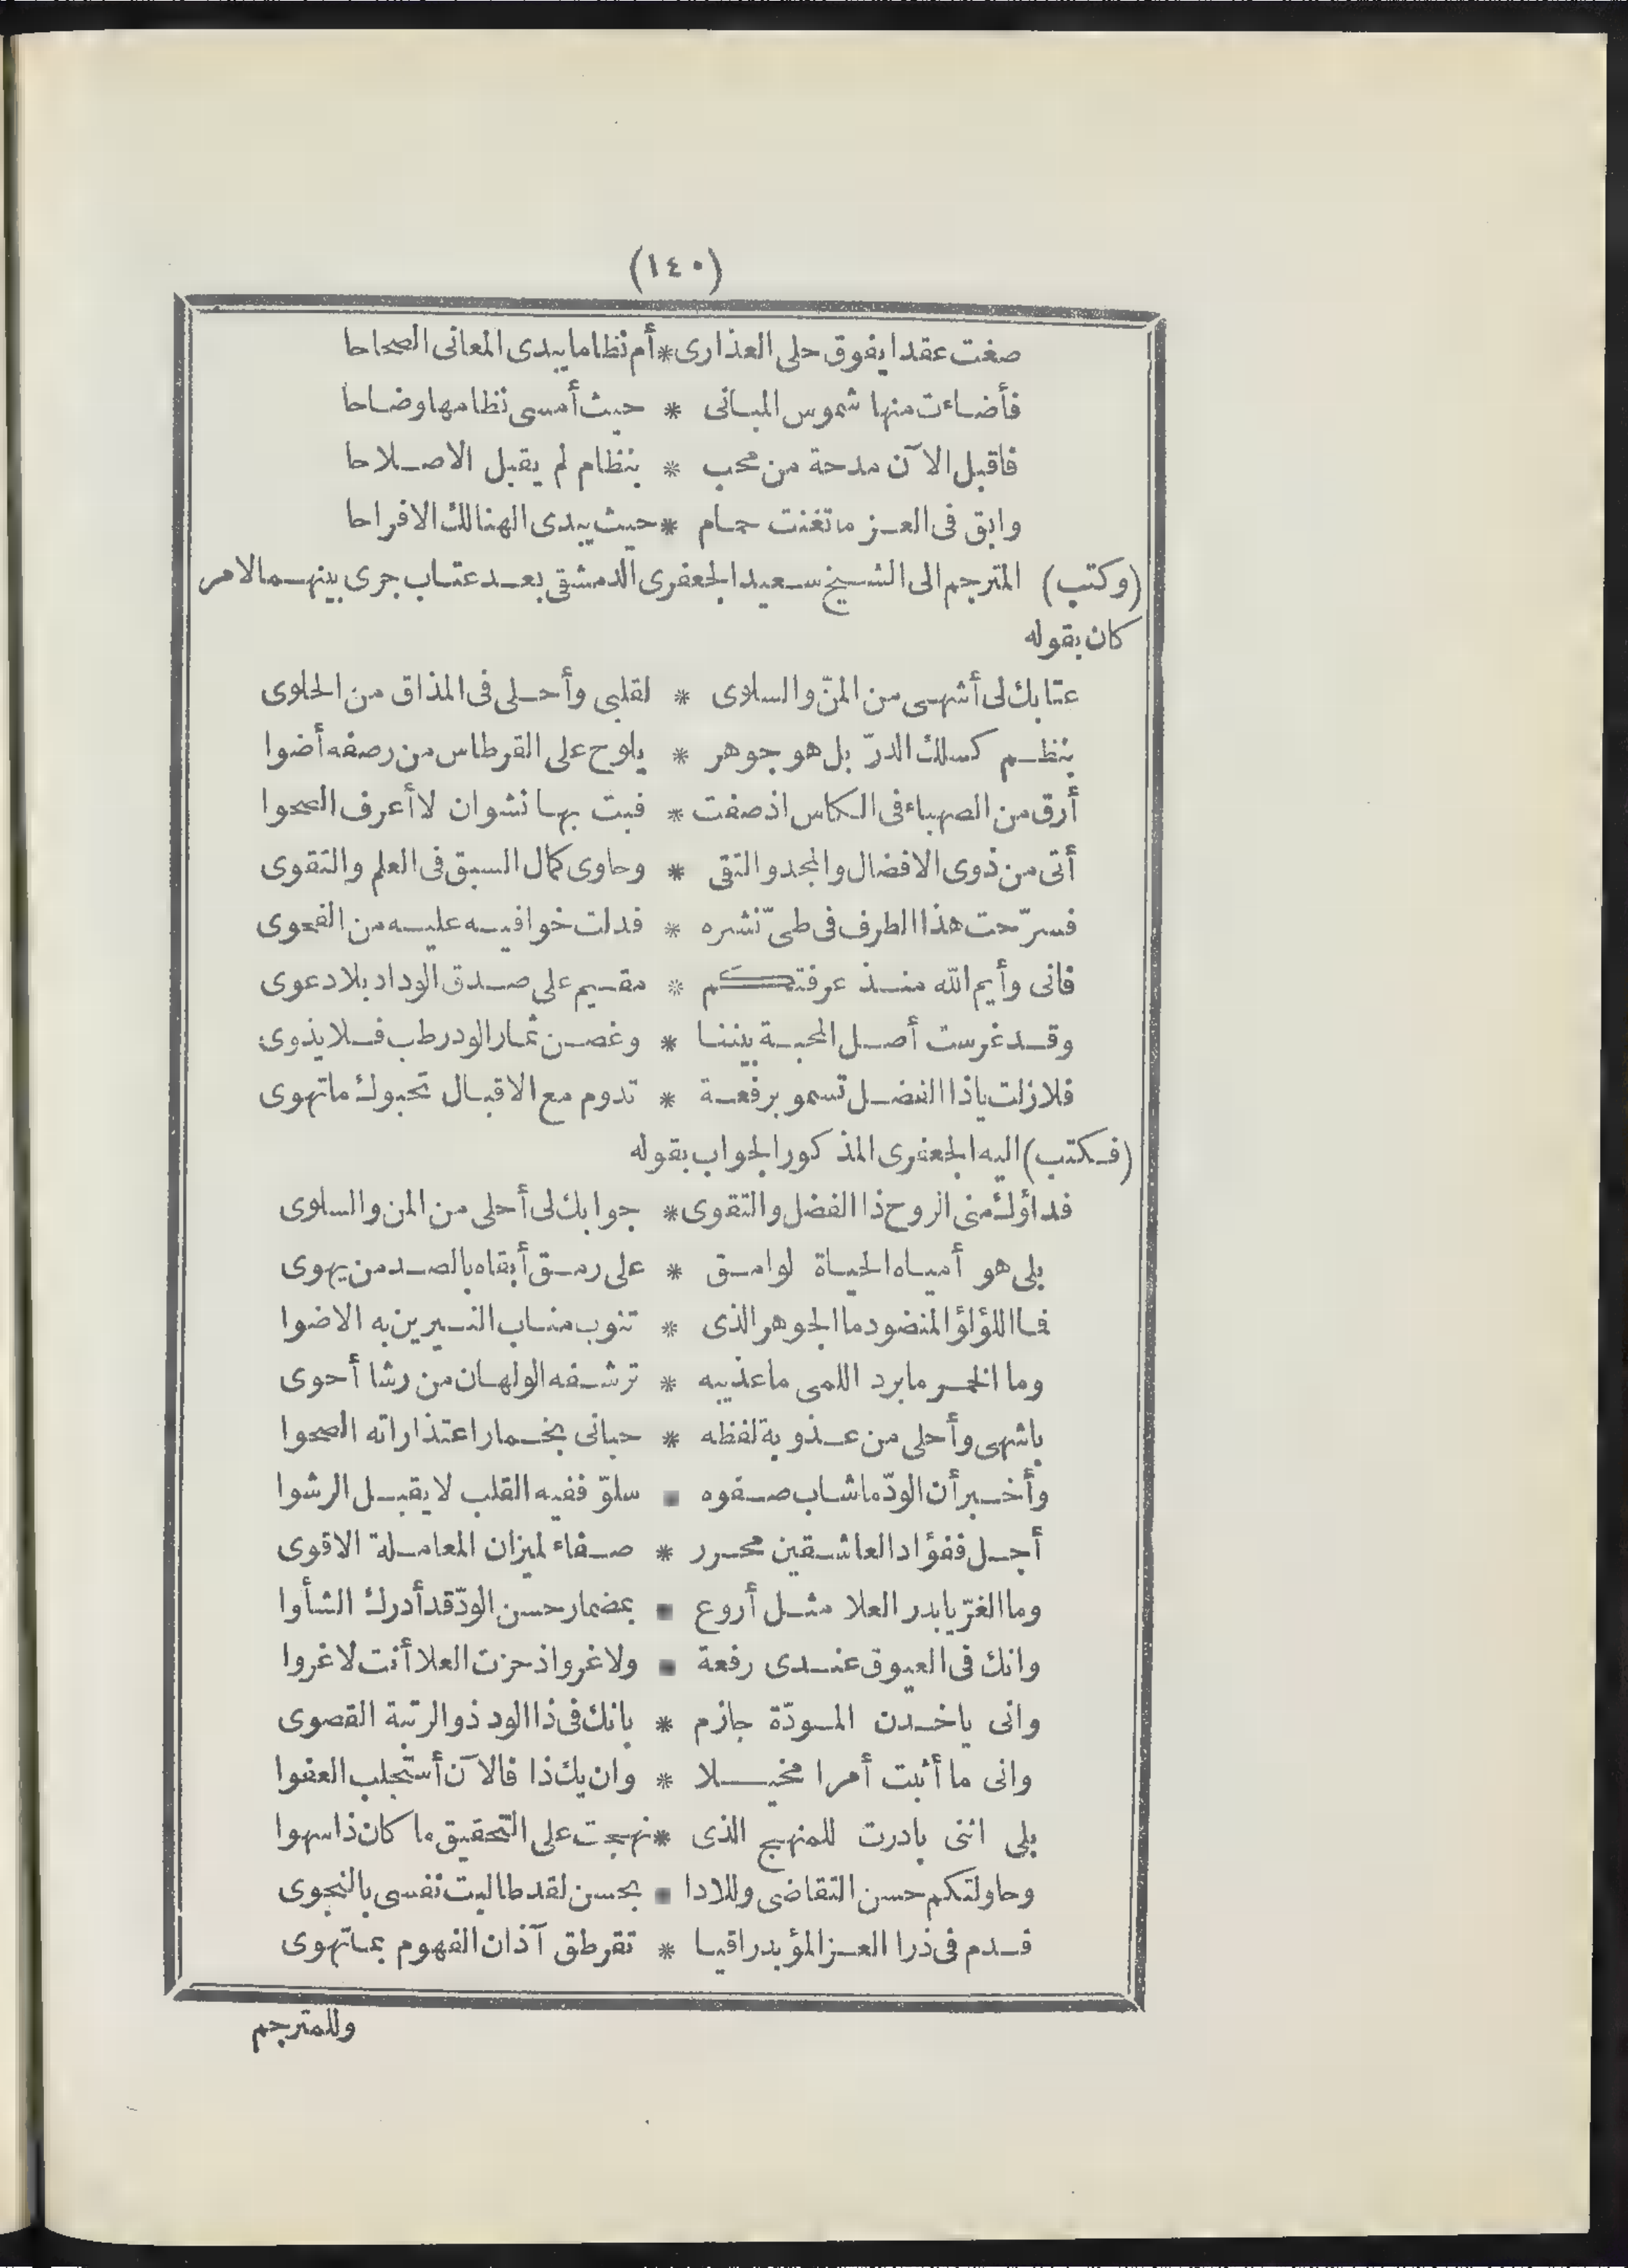 (١٤٠)
صغت عقدا يفوق حلى العذارى * أم نظاما يبدى المعانى الصحاحا
فأضاءت منها شموس المبانى * حيث أمسى نظامها وضاحا
فاقبل الآن مدحة من محب * بنظام لم يقبل الاصلاحا
وابق فى العز ما تغنت حمام * حيث يبدى الهنا لك الافراحا
(وكتب) المترجم الى الشيخ سعيد الجعفرى الدمشقى بعد عتاب جرى بينهما لامر
كان بقوله
عتابك لى أشهى من المنّ والسلوى * لقلبى وأحلى فى المذاق من الحلوى
بنظم كسلك الدرّ بل هو جوهر * يلوح على القرطاس من رصفه أضوا
أرق من الصهباء فى الكاس اذ صفت * فبت بها نشوان لا أعرف الصحوا
أتى من ذوى الافضال والمجد والتقى * وحاوى كمال السبق فى العلم والتقوى
فسرّحت هذا الطرف فى طىّ نشره * فدلت خوافيه عليه من الفحوى
فانى وأيم الله منذ عرفتكم * مقيم على صدق الوداد بلا دعوى
وقد غرست أصل المحبة بيننا * وغصن ثمار الود رطب فلا يذوى
فلا زلت ياذا الفضل تسمو برفعة * تدوم مع الاقبال تحبوك ما تهوى
(فكتب) اليه الجعفرى المذكور الجواب بقوله
فداؤك منى الروح ذا الفضل والتقوى * جوابك لى أحلى من المن والسلوى
بلى هو أمياه الحياة لوامق * على رمق أبقاه بالصد من يهوى
فما اللؤلؤ المنضود ما الجوهر الذى * تنوب مناب النيرين به الاضوا
وما الخمر ما برد اللمى ما عذيبه * ترشفه الولهان من رشا أحوى
باشهى وأحلى من عذوبة لفظه * حبانى بخمار اعتذاراته الصحوا
وأخبر أن الودّ ما شاب صفوه * سلوّ ففيه القلب لا يقبل الرشوا
أجل ففؤاد العاشقين محرر * صفاء لميزان المعاملة الاقوى
وما الغرّ يا بدر العلا مثل أروع * بمضمار حسن الودّ قد أدرك الشأوا
وانك فى العيوق عندى رفعة * ولا غروا ذ حزت العلا أنت لا غروا
وانى يا خدن المودّة جازم * بانك فى ذا الود ذو الرتبة القصوى
وانى ما أثبت أمرا مخيلا * وان يك ذا فالآن أستجلب العفوا
بلى اننى بادرت للمنهج الذى * نهجت على التحقيق ما كان ذا سهوا
وحاولتكم حسن التقاضى وللادا * بحسن لقد طالبت نفسى بالنجوى
فدم فى ذرا العز المؤبد راقيا * تقرطق آذان الفهوم بما تهوى
وللمترجم